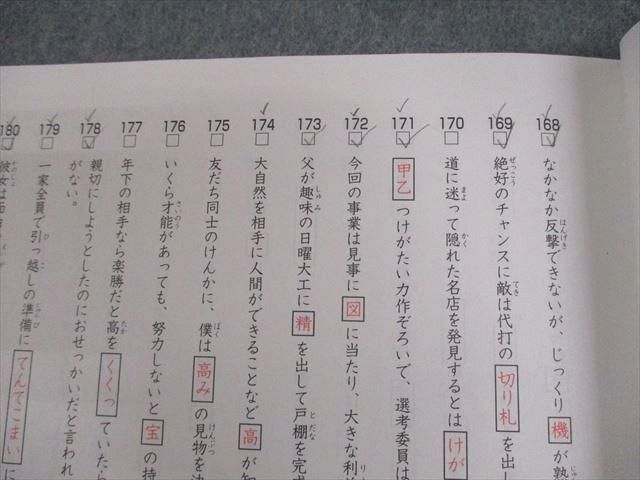 168
なかなか反撃できないが、じっくり機が熟
はんげき
じゅ
169
絶好のチャンスに敵は代打の切り札を出し
ぜっこう
てき
170
道に迷って隠れた名店を発見するとはけが
まよ
かく
171
甲乙つけがたい力作ぞろいで、選考委員は
172
今回の事業は見事に図に当たり、大きな利
り
173
父が趣味の日曜大工に精を出して戸棚を完
しゅみ
とだな
174
大自然を相手に人間ができることなど高が知
175
友だち同士のけんかに、僕は高みの見物を
ぼく
けんぶつ
176
いくら才能があっても、努力しないと宝の持
さいのう
177
年下の相手なら楽勝だと高をくくっていたら
たか
178
親切にしようとしたのにおせっかいだと言われ
がない。
179
一家全員で引っ越しの準備にてんてこまい
ひ
こ
じゅんび
180
彼女は
かのじょ